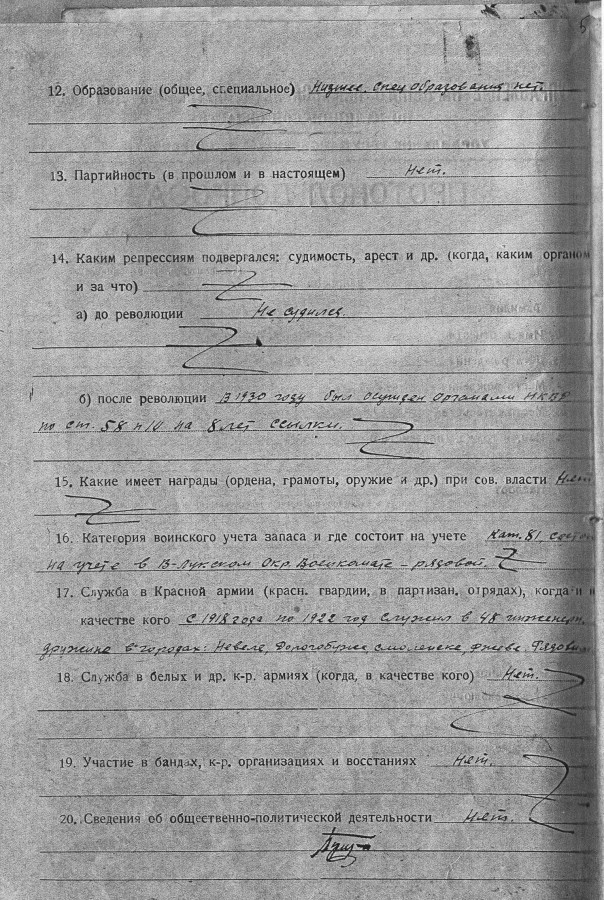 5
12. Образование (общее, специальное) Низшее. Спец образования нет.
13. Партийность (в прошлом и в настоящем) Нет.
14. Каким репрессиям подвергался: судимость, арест и др. (когда, каким органом
и за что)
а) до революции Не судился.
б) после революции В 1930 году был осужден органами НКВД
по ст. 58 п IV на 8 лет ссылки.
15. Какие имеет награды (ордена, грамоты, оружие и др.) при сов. власти Нет
16. Категория воинского учета запаса и где состоит на учете Кат. 81, состо
на учете в В-Лукском Окр. Военкомате – рядовой.
17. Служба в Красной армии (красн. гвардии, в партизан. отрядах), когда и
качестве кого С 1918 года по 1922 год служил в 48 инженерн.
дружине в городах: Невеле, Дорогобуже, Смоленске, Ржеве. Рядовым
18. Служба в белых и др. к-р. армиях (когда, в качестве кого) Нет.
19. Участие в бандах, к-р. организациях и восстаниях Нет.
20. Сведения об общественно-политической деятельности Нет.